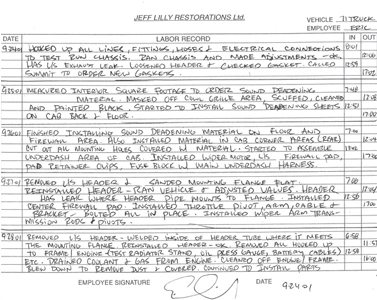 JEFF LILLY RESTORATIONS Ltd.
VEHICLE 71 TRUCK
EMPLOYEE ERIC
DATE LABOR RECORD IN OUT
HOOKED UP ALL LINES, FITTINGS, HOSES & ELECTRICAL CONNECTIONS 8:01
TO TEST RUN CHASSIS. RAN CHASSIS AND MADE ADJUSTMENTS - OK 12:00
HAS L/S EXHAUST LEAK. LOOSENED HEADER & CHECKED GASKET. CALLED 12:59
SUMMIT TO ORDER NEW GASKETS. 17:02
92501 MEASURED INTERIOR SQUARE FOOTAGE TO ORDER SOUND DEADENING 7:48
MATERIAL. MASKED OFF COWL GRILLE AREA, SCUFFED, CLEANED
AND PAINTED BLACK. STARTED TO INSTALL SOUND DEADENING SHEETS 12:51
ON CAB BACK & FLOOR. 17:00
92601 FINISHED INSTALLING SOUND DEADENING MATERIAL ON FLOOR AND 7:00
FIREWALL AREA ALSO INSTALLED MATERIAL IN CAB CORNER AREAS (REAR)
CUT OUT ALL MOUNTING HOLES COVERED W/ MATERIAL - STARTED TO ASSEMBLE
UNDERDASH AREA OF CAR. INSTALLED WIPER MOTOR, L/S FIREWALL PAD,
PAD RETAINER CLIPS, FUSE BLOCK W/ MAIN UNDERDASH HARNESS.
92701 REMOVED L/S HEADER & SANDED MOUNTING FLANGE FLAT 7:00
REINSTALLED HEADER - RAN VEHICLE & ADJUSTED VALVES. HEADER
HAS LEAK WHERE HEADER PIPE MOUNTS TO FLANGE. INSTALLED 12:50
CENTER FIREWALL PAD INSTALLED THROTTLE PIVOT, ARM, CABLE &
BRACKET - BOLTED ALL IN PLACE. INSTALLED WIPER ARM TRANS-
MISSION RODS & PIVOTS.
92801 REMOVED L/S HEADER - WELDED INSIDE OF HEADER TUBE WHERE IT MEETS 6:58
THE MOUNTING FLANGE. REINSTALLED HEADER - OK REMOVED ALL HOOKED UP
TO FRAME/ENGINE (TEST RADIATOR STAND, OIL PRESS GAUGE, BATTERY CABLES)
ETC. DRAINED COOLANT & GAS FROM ENGINE. CLEANED OFF ENGINE/FRAME.
BLEW DOWN TO REMOVE DUST & COVERED. CONTINUED TO INSTALL PARTS
EMPLOYEE SIGNATURE DATE 92901